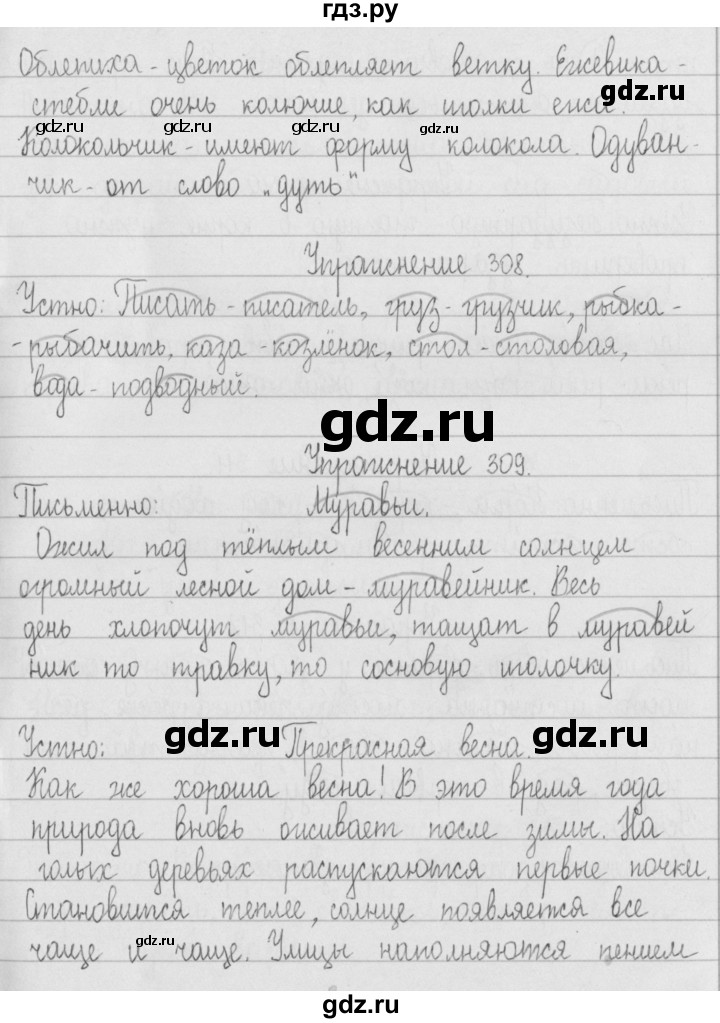 гдз.ру
Облепиха - цветок облепляет ветку. Ежевика -
стебли очень колючие, как иголки ежа.
gdz.ru gdz.ru gdz.ru gdz.ru
Колокольчик - имеют форму колокола. Одуван-
чик - от слово "дуть"
Упражнение 308.
Устно: Писать - писатель, груз - грузчик, рыбка -
- рыбачить, каза - козлёнок, стол - столовая,
вода - подводный.
gdz.ru
Упражнение 309.
Письменно: Муравьи.
Ожил под тёплым весенним солнцем
огромный лесной дом - муравейник. Весь
день хлопочут муравьи, тащат в муравей
ник то травку, то сосновую иголочку.
gdz.ru gdz.ru gdz.ru
Устно: Прекрасная весна.
Как же хороша весна! В это время года
природа вновь оживает после зимы. На
голых деревьях распускаются первые почки.
Становится теплее, солнце появляется все
чаще и чаще. Улицы наполняются пением
gdz.ru gdz.ru
gdz.ru